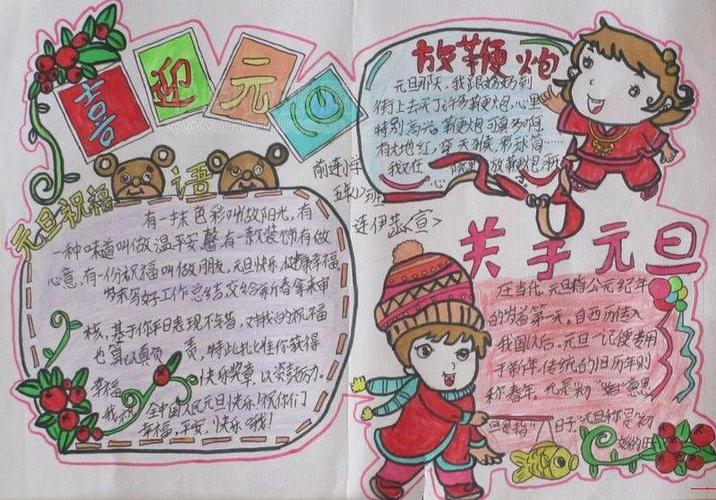 喜迎元旦
元旦祝福语
有一抹色彩叫做阳光,有
一种味道叫做温馨,有一款装饰有做
心意,有一份祝福叫做朋友,元旦快乐,健康幸福,
岁末写好工作总结交给新春拿来审
核,基于你平日表现不错,对我的祝福
也算认真负责,特此批准你获得
幸福快乐奖章,以资鼓励。
我祝全中国人民元旦快乐!祝你们
幸福,平安,快乐哦!
放鞭炮
元旦那天,我跟妈妈到
街上去买了许多鞭炮,心里
特别高兴,鞭炮可真多啊,
有大地红,穿天猴,彩球筒……
我又在院里放鞭炮,开
心
前连小学
五(2)班
连伊蕊<宣>
关于元旦
在当代,元旦指公元纪年
的岁首第一天。自西历传入
我国以后,元旦一记便专用
于新年,传统的旧历年则
称春年。元是初"始"意思
旦是指"日子"元旦称是"初
始的日